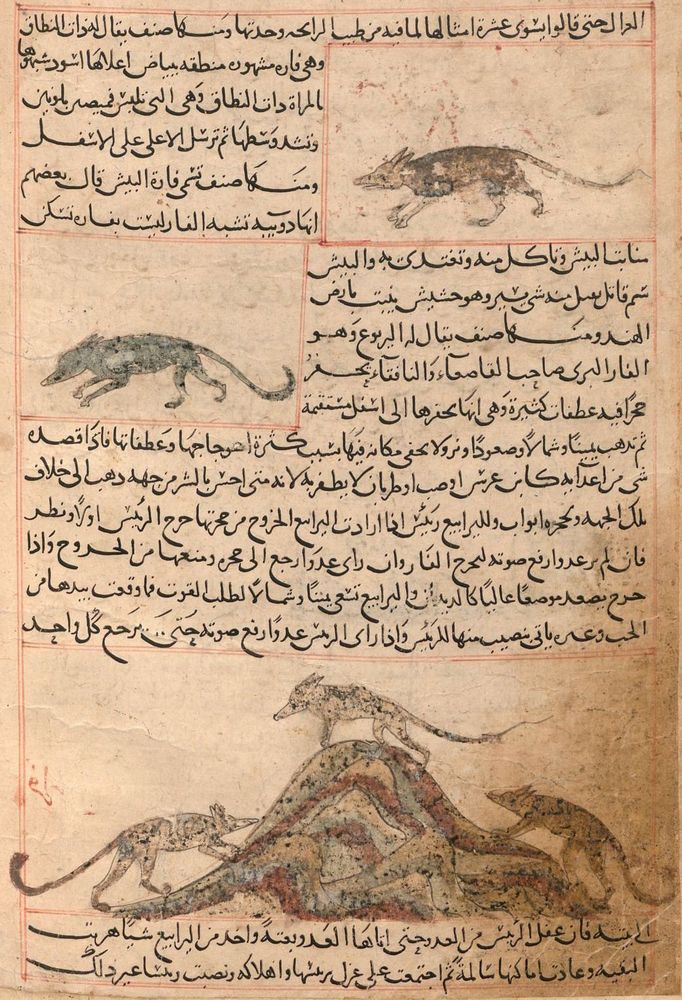 الغزال حتى قالوا يسوى عشرة امثالها لما فيه من طيب الرايحه وحدتها ومنها صنف يقال له ذات النطاق
وهي فاره مشهوره منطقه ببياض اعلاها اسود شبهوها
بالمراة ذات النطاق وهي التي تلبس قميصين ملونين
وتشد وسطها ثم ترسل الاعلى على الاسفل
ومنها صنف تسمى فارة البيش قال بعضهم
انها دويبه تشبه الفار ليست بفاره تسكن
منابت البيش وتاكل منه وتغتدى به والبيش
سم قاتل يقتل منه شي يسير وهو حشيش ينبت بارض
الهند ومنها صنف يقال له اليربوع وهو
الفار البرى صاحب القاصعاء والنافقاء يحفر
حجرا فيه عطفات كثيرة وهي انها يحفرها الى اسفل مستقيمة
ثم تذهب يمينا وشمالا وصعودا ونزولا يخفى مكانه فيها بسبب كثرة اعوجاجها وعطفاتها فاذا قصده
شي من اعدايه كابن عرس او ضب او ظربان لا يظفر به لانه متى احس بالشر من جهه ذهب الى خلاف
تلك الجهه ولحجره ابواب ولليرابيع رئيس اذا ارادت اليرابيع الخروج من حجرتها خرج الرئيس اولا ونظر
فان لم ير عدوا رفع صوته ليخرج الفار وان راى عدوا رجع الى حجره ومنعها من الخروج واذا
خرج يصعد موضعا عاليا كالديدبان واليرابيع تسعى يمينا وشمالا لطلب القوت فما وقعت بيدها من
الحب وغيره ياتى بنصيب منها للرئيس واذا راى الرئيس عدوا رفع صوته حتى يرجع كل واحد
الى بيته فان غفل الرئيس من العدو حتى اتاها العدو بغتة واخذ من اليرابيع شيا هربت
البقيه وعادت اماكنها سالمة ثم اجتمعت على عزل رئيسها واهلاكه ونصبت رئيسا غير ذلك